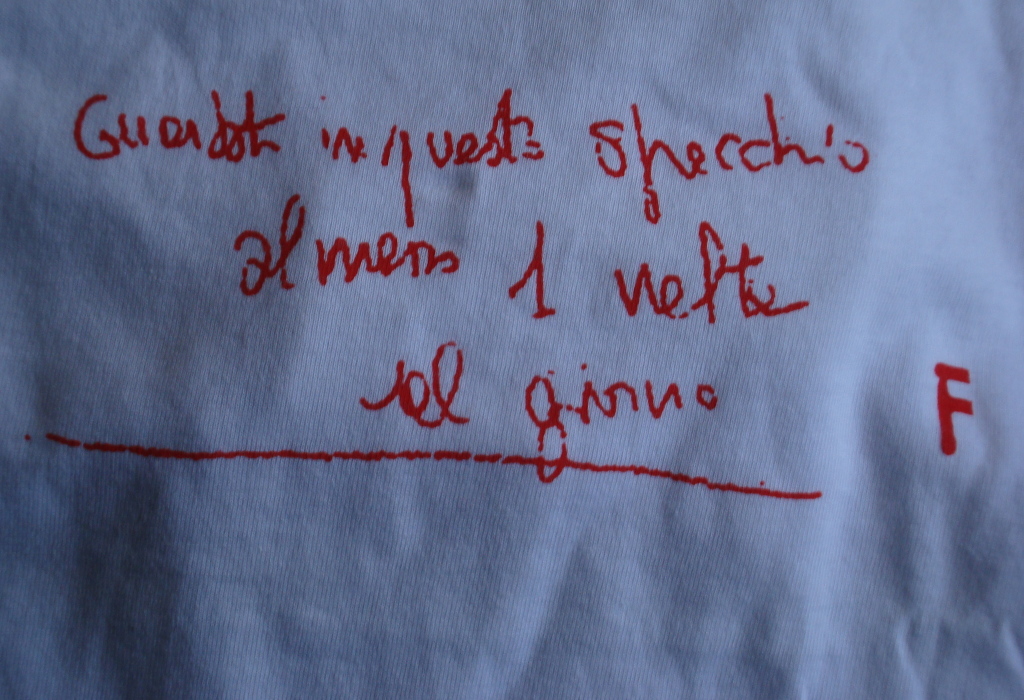 Guardati in questo specchio
almeno 1 volta
al giorno
F